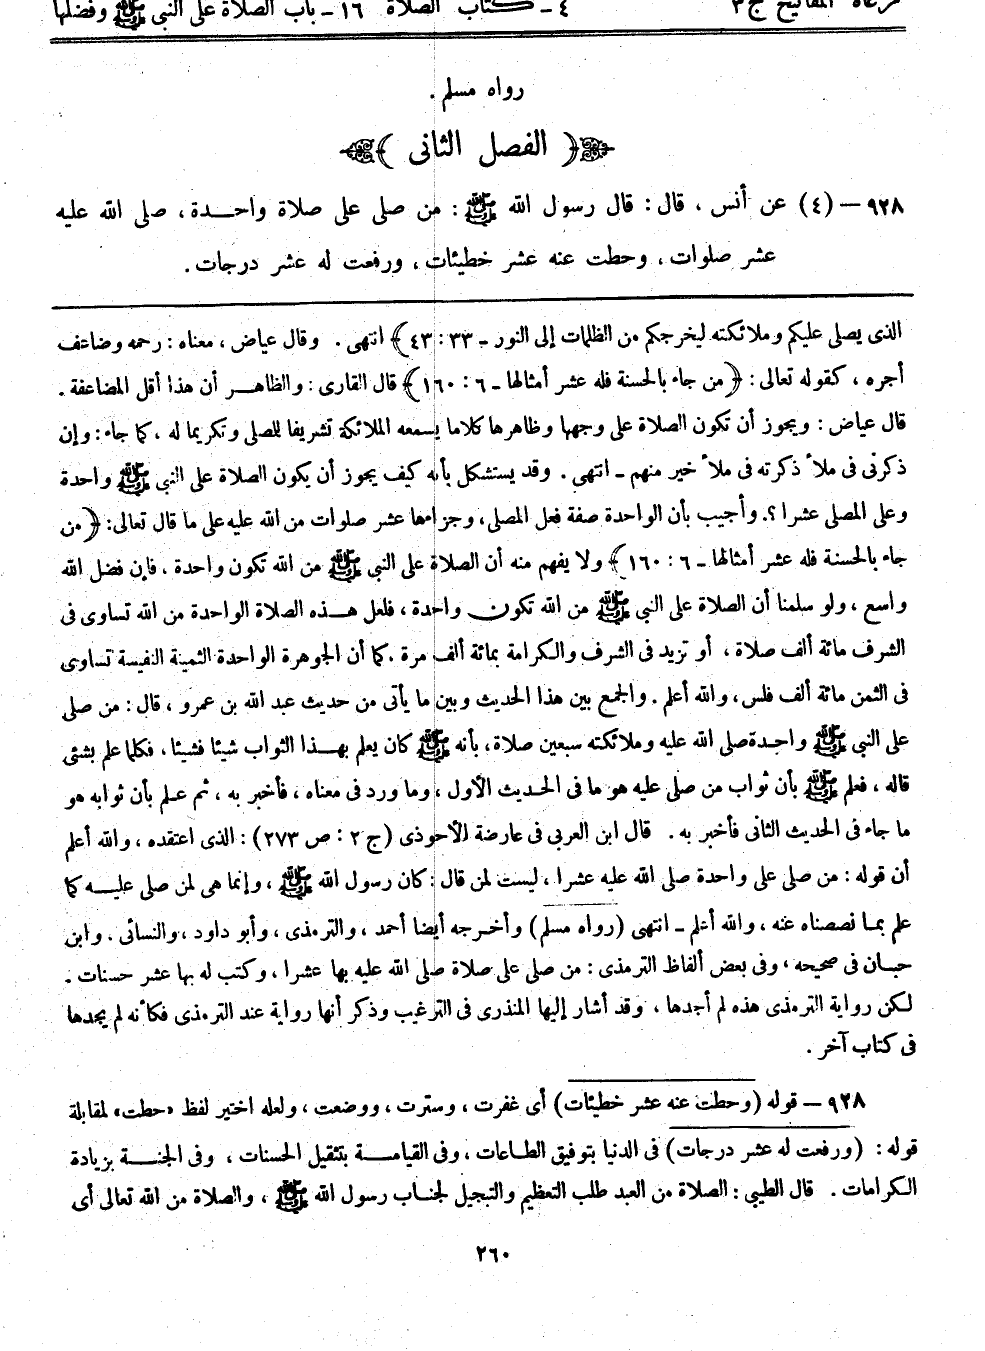 مرعاة المفاتيح ج ٣ ٤ ـ كتاب الصلاة ١٦ ـ باب الصلاة على النبي ﷺ وفضلها
رواه مسلم .
﴿ الفصل الثانى ﴾
٩٢٨ – (٤) عن أنس ، قال : قال رسول الله ﷺ : من صلى على صلاة واحدة ، صلى الله عليه
عشر صلوات ، وحطت عنه عشر خطيئات ، ورفعت له عشر درجات .
الذى يصلى عليكم وملائكته ليخرجكم من الظلمات إلى النور ـ ٣٣ : ٤٣ ﴾ انتهى . وقال عياض ، معناه : رحمه وضاعف
أجره ، كقوله تعالى : ﴿ من جاء بالحسنة فله عشر أمثالها ـ ٦ : ١٦٠ ﴾ قال القارى : والظاهر أن هذا أقل المضاعفة .
قال عياض : ويجوز أن تكون الصلاة على وجهها وظاهرها كلاما يسمعه الملائكة تشريفا للمصلى وتكريما له ، كما جاء : وإن
ذكرنى فى ملأ ذكرته فى ملأ خير منهم ـ انتهى . وقد يستشكل بأنه كيف يجوز أن يكون الصلاة على النبى ﷺ واحدة
وعلى المصلى عشرا ؟. وأجيب بأن الواحدة صفة فعل المصلى ، وجزاءها عشر صلوات من الله عليه على ما قال تعالى : ﴿ من
جاء بالحسنة فله عشر أمثالها ـ ٦ : ١٦٠ ﴾ ولا يفهم منه أن الصلاة على النبى ﷺ من الله تكون واحدة ، فإن فضل الله
واسع ، ولو سلمنا أن الصلاة على النبى ﷺ من الله تكون واحدة ، فلعل هذه الصلاة الواحدة من الله تساوى فى
الشرف مائة ألف صلاة ، أو تزيد فى الشرف والكرامة بمائة ألف مرة . كما أن الجوهرة الواحدة الثمينة النفيسة تساوى
فى الثمن مائة ألف فلس ، والله أعلم . والجمع بين هذا الحديث وبين ما يأتى من حديث عبد الله بن عمرو ، قال : من صلى
على النبى ﷺ واحدة صلى الله عليه وملائكته سبعين صلاة ، بأنه ﷺ كان يعلم بهذا الثواب شيئا فشيئا ، فكلما علم بشئى
قاله ، فعلم ﷺ بأن ثواب من صلى عليه هو ما فى الحديث الأول ، وما ورد فى معناه ، فأخبر به ، ثم علم بأن ثوابه هو
ما جاء فى الحديث الثانى فأخبر به . قال ابن العربى فى عارضة الأحوذى (ج ٢ : ص ٢٧٣) : الذى اعتقده ، والله أعلم
أن قوله : من صلى على واحدة صلى الله عليه عشرا ، ليست لمن قال : كان رسول الله ﷺ ، وإنما هى لمن صلى عليه كما
علم بما نصصناه عنه ، والله أعلم ـ انتهى (رواه مسلم) وأخرجه أيضا أحمد ، والترمذى ، وأبو داود ، والنسائى . وابن
حبان فى صحيحه ، وفى بعض ألفاظ الترمذى : من صلى على صلاة صلى الله عليه بها عشرا ، وكتب له بها عشر حسنات .
لكن رواية الترمذى هذه لم أجدها ، وقد أشار إليها المنذرى فى الترغيب وذكر أنها رواية عند الترمذى فكأنه لم يجدها
فى كتاب آخر .
٩٢٨ – قوله (وحطت عنه عشر خطيئات) أى غفرت ، وسترت ، ووضعت ، ولعله اختير لفظ «حطت» لمقابلة
قوله : (ورفعت له عشر درجات) فى الدنيا بتوفيق الطاعات ، وفى القيامة بتثقيل الحسنات ، وفى الجنة بزيادة
الكرامات . قال الطيبى : الصلاة من العبد طلب التعظيم والتبجيل لجناب رسول الله ﷺ ، والصلاة من الله تعالى أى
٢٦٠